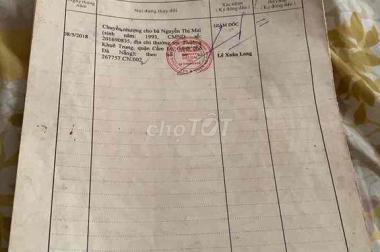 Nội dung thay đổi
28/5/2018
Chuyển nhượng cho bà Nguyễn Thị Mai
(sinh năm: 1993, CMND số:
201690835, địa chỉ thường trú: phường
Khuê Trung, quận Cẩm Lệ, thành phố
Đà Nẵng); theo hồ sơ số
267757.CN.002
GIÁM ĐỐC
Lê Xuân Long
chợTỐT